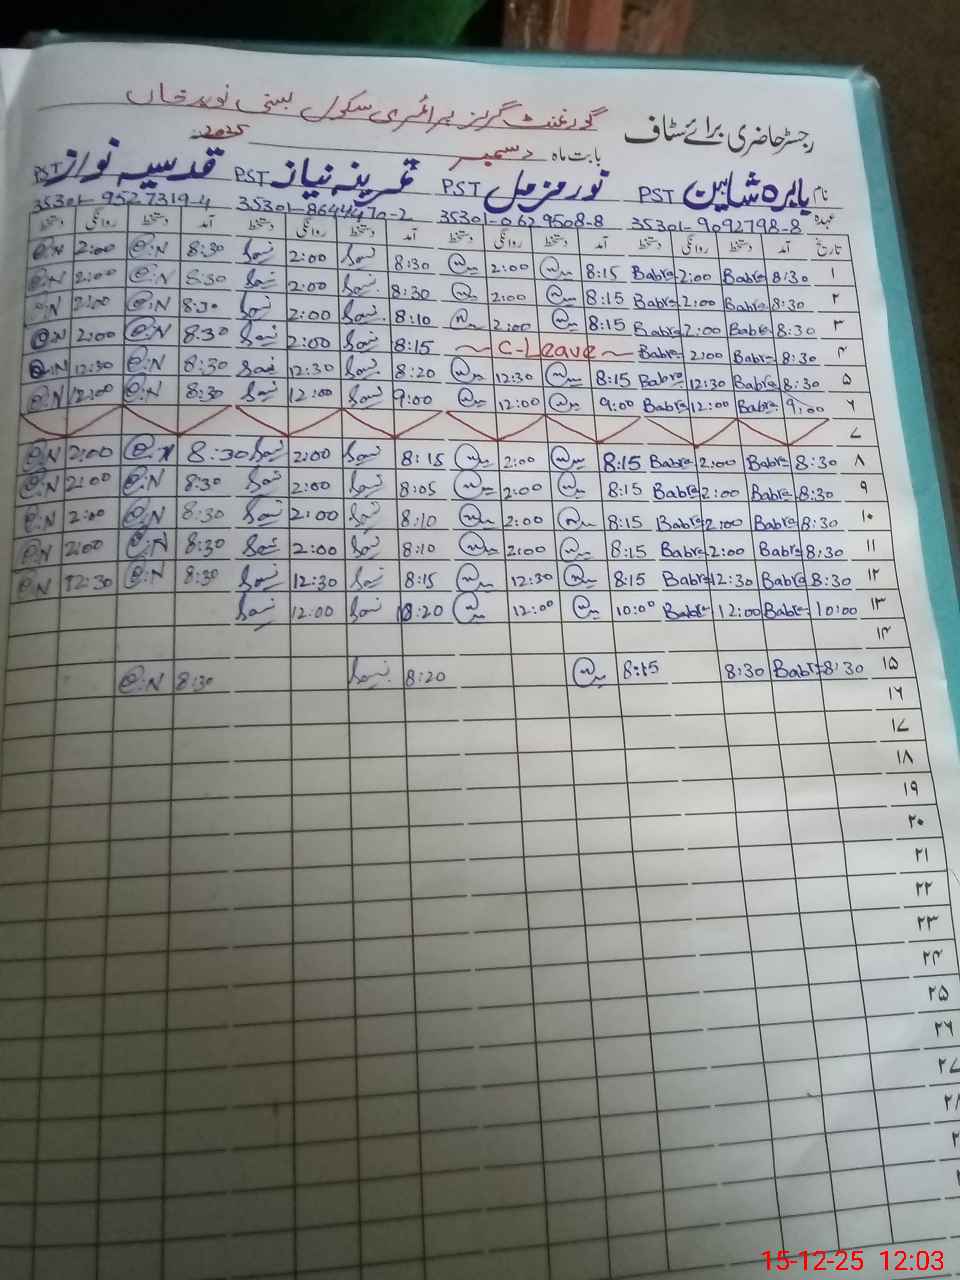 گورنمنٹ گرلز پرائمری سکول بستی نوید خاں
رجسٹر حاضری برائے سٹاف
بابت ماہ دسمبر 2025
نام بابرہ شاہین PST نور مزمل PST ثمرینہ نیاز PST قدسیہ نواز PST
عہدہ 35301-9092798-8 35301-0629508-8 35301-8644470-2 35301-9527319-4
تاریخ آمد دستخط روانگی دستخط آمد دستخط روانگی دستخط آمد دستخط روانگی دستخط آمد دستخط روانگی دستخط
۱ 8:30 Babra 2:00 Babra 8:15 2:00 8:30 2:00 8:30 @:N 2:00 @:N
۲ 8:30 Babra 2:00 Babra 8:15 2:00 8:30 2:00 8:30 @:N 2:00 @:N
۳ 8:30 Babra 2:00 Babra 8:15 2:00 8:10 2:00 8:30 @:N 2:00 @:N
۴ 8:30 Babra 2:00 Babra C-Leave 8:15 2:00 8:30 @:N 2:00 @:N
۵ 8:30 Babra 12:30 Babra 8:15 12:30 8:20 12:30 8:30 @:N 12:30 @:N
۶ 9:00 Babra 12:00 Babra 9:00 12:00 9:00 12:00 8:30 @:N 12:00 @:N
۷
۸ 8:30 Babra 2:00 Babra 8:15 2:00 8:15 2:00 8:30 @:N 2:00 @:N
۹ 8:30 Babra 2:00 Babra 8:15 2:00 8:05 2:00 8:30 @:N 2:00 @:N
۱۰ 8:30 Babra 2:00 Babra 8:15 2:00 8:10 2:00 8:30 @:N 2:00 @:N
۱۱ 8:30 Babra 2:00 Babra 8:15 2:00 8:10 2:00 8:30 @:N 2:00 @:N
۱۲ 8:30 Babra 12:30 Babra 8:15 12:30 8:15 12:30 8:30 @:N 12:30 @:N
۱۳ 10:00 Babra 12:00 Babra 10:00 12:00 10:20 12:00
۱۴
۱۵ 8:30 Babra 8:30 8:15 8:20 8:30 @:N
۱۶
۱۷
۱۸
۱۹
۲۰
۲۱
۲۲
۲۳
۲۴
۲۵
۲۶
۲۷
۲۸
15-12-25 12:03